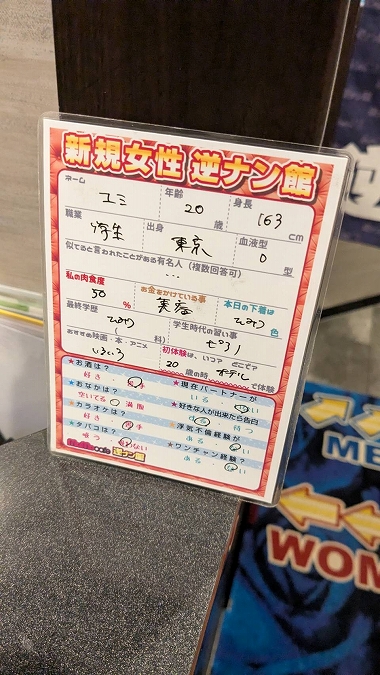 新規女性 逆ナン館
ネーム 年齢 身長
ユミ 20 歳 163 cm
職業 出身 血液型
学生 東京 O 型
似てると言われたことがある有名人（複数回答可）
...
私の肉食度 お金をかけている事 本日の下着は
50 % 美容 ひみつ 色
最終学歴 学生時代の習い事
ひみつ ピアノ
おすすめ映画・本・アニメ 初体験は、いつ？ どこで？
いろいろ 20 歳の時 ホテル で体験
★お酒は？ ★現在パートナーが
好き ・ 苦手 いる ・ いない
★おなかは？ ★好きな人が出来たら告白
空いてる ・ 満腹 する ・ 待つ
★カラオケは？ ★浮気不倫経験が
好き ・ 苦手 ある ・ ない
★タバコは？ ★ワンチャン経験？
吸う ・ 吸わない ある ・ ない
cafe 逆ナン館
ME
WOM